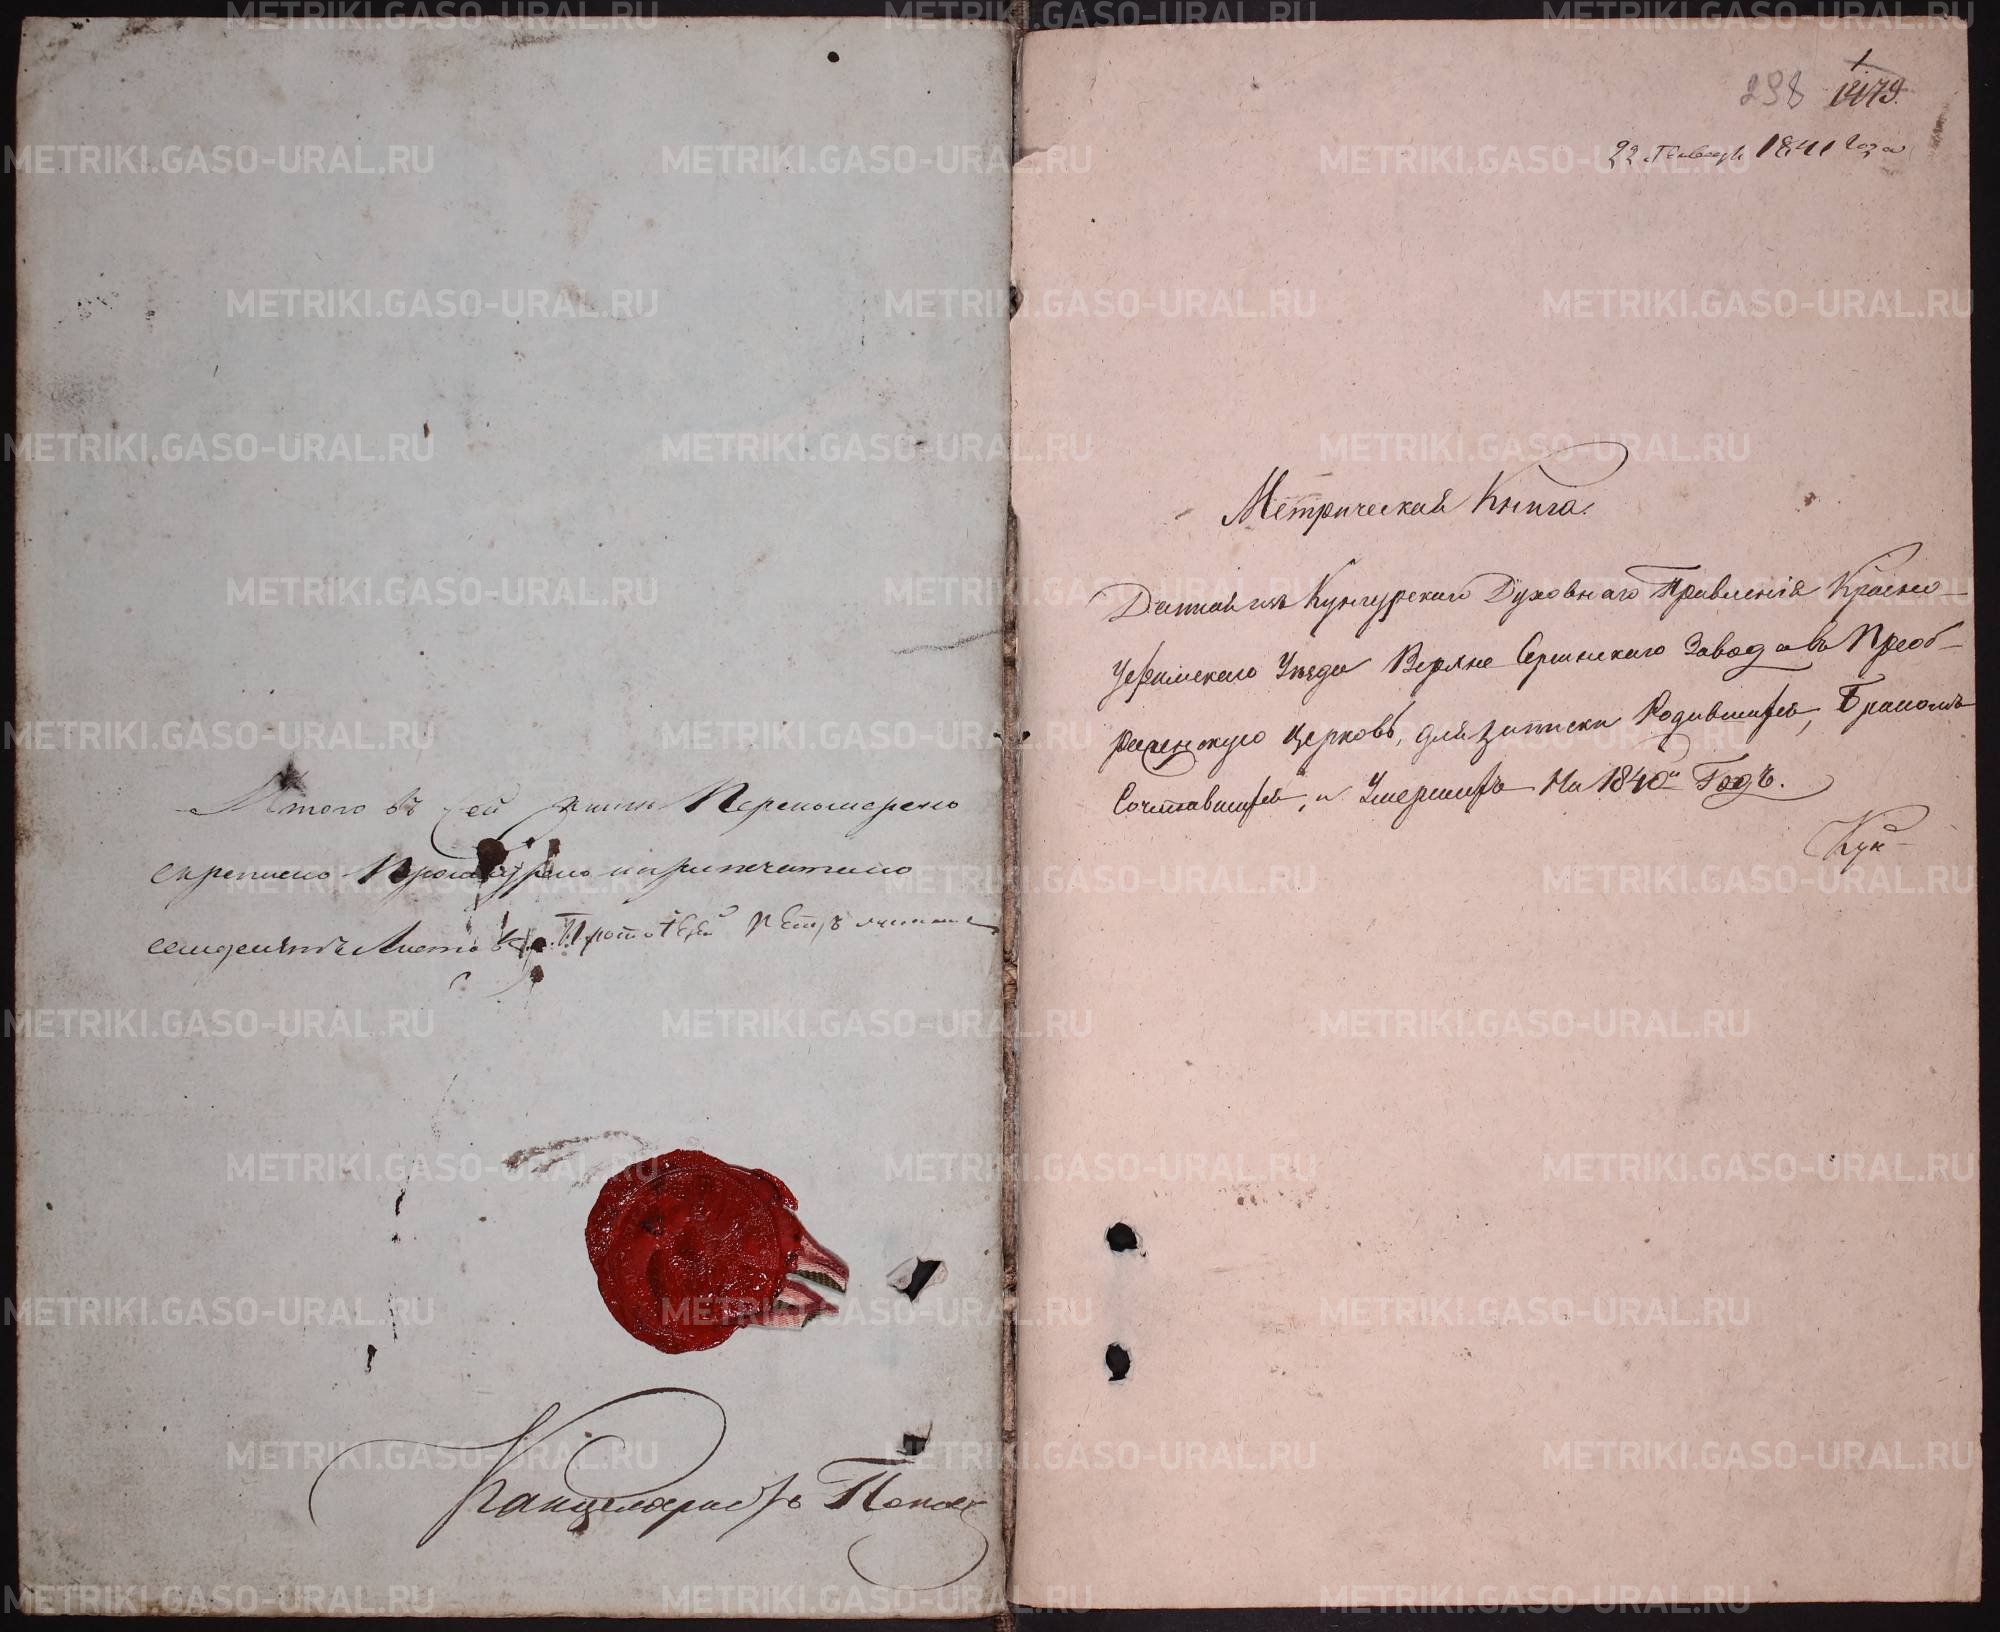 Итого въ сей книгѣ Перенумерено
скреплено Прошнурено и припечатано
семдесятъ Листовъ. Протоіерей Петръ
Канцеляристъ Попов
298 1
1479.
22 Генваря 1841 года
Метрическая Книга.
Данная изъ Кунгурскаго Духовнаго Правленія Красно-
уфимскаго Уѣзда Верхне Сергинскаго Завода въ Преоб-
раженскую церковь, для записки Родившихся, Бракомъ
Сочетавшихся, и Умершихъ На 1840й Годъ.
Кун-
METRIKI.GASO-URAL.RU